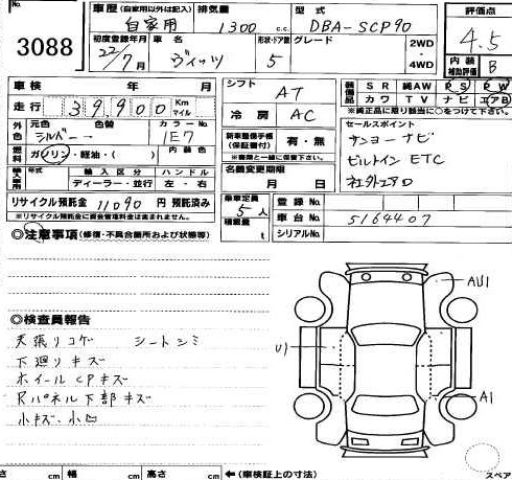 No. 3088
車歴(自家用以外は記入) 自家用
排気量 1300 c.c.
型式 DBA-SCP90
評価点 4.5
初度登録年月 22/7月
車名 ヴィッツ
形状・ドア数 5
グレード
2WD・4WD
内装補助評価 B
車検 年 月
シフト AT
装備品 SR 純AW PS PW
カワ TV ナビ エアB
※純正品に限り該当に○をつけて下さい。
走行 39,900 Km マイル
冷房 AC
セールスポイント
サンヨーナビ
ビルトインETC
社外エアロ
外色 元色 シルバー 色替 カラーNo. 1E7
新車整備手帳(保証書付) 有・無
※書類と一緒に保管下さい。
燃料 ガソリン・軽油・( ) 内装色
名義変更期限 月 日
輸入車用 年式 輸入区分 ハンドル
ディーラー・並行 左・右
リサイクル預託金 11090 円 預託済み
※リサイクル預託金に資金管理料金は含まれません。
乗車定員 5人
積載量 t
登録No.
車台No. 5164407
シリアルNo.
◎注意事項(修復・不具合箇所および状態等)
◎検査員報告
天張りコゲ シートシミ
下廻りキズ
ホイールCPキズ
Rパネル下部キズ
小キズ、小凹
AU1
U1
A1
さ cm 幅 cm 高さ cm ←(車検証上の寸法)
スペア